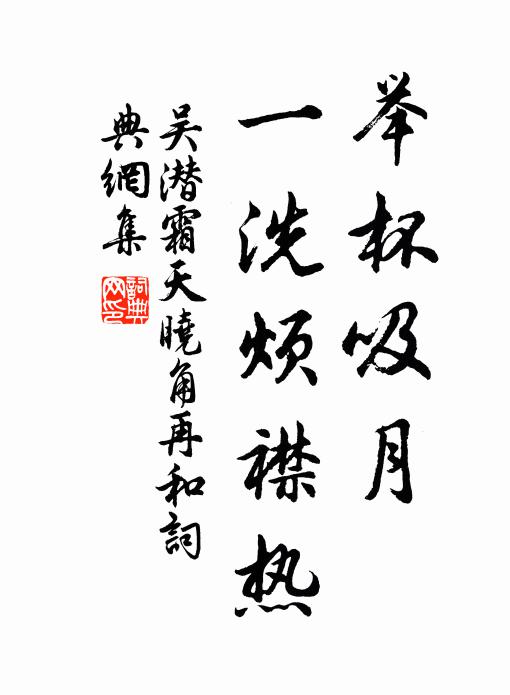 举杯吸月
一洗烦襟热
吴潜霜天曉角再和詞
典網集
詞典
网印